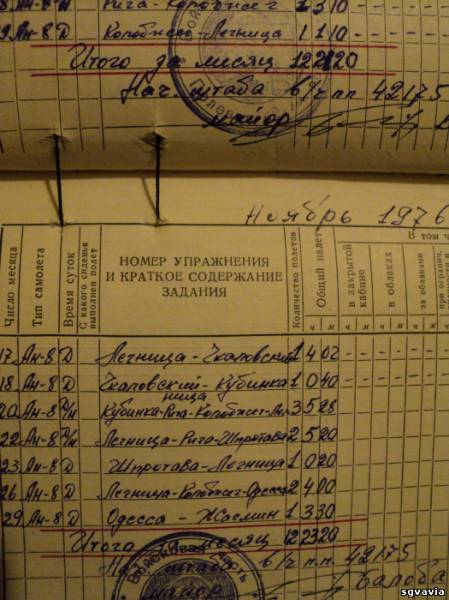 8 Ан-8 Рига-Колобжег 1 3 10
9 Ан-8 Д Колобжег-Легница 1 1 10
Итого за месяц 12 21 20
Нач. штаба в/ч пп 42175
майор
Ноябрь 1976
Число месяца
Тип самолета
Время суток
С какого сиденья выполнен полет
НОМЕР УПРАЖНЕНИЯ
И КРАТКОЕ СОДЕРЖАНИЕ
ЗАДАНИЯ
Количество полетов
Общий налет
В том ч
в закрытой кабине
в облаках
за облаками
при огранич.
ч м ч м ч м ч
17 Ан-8 Д Легница-Чкаловский 1 4 02
18 Ан-8 Д Чкаловский-Кубинка 1 0 40
20 Ан-8 Д/н Кубинка-Рига-Колобжег-Легница 3 5 28
22 Ан-8 Д/н Легница-Рига-Шпротава 2 5 20
23 Ан-8 Д Шпротава-Легница 1 0 20
26 Ан-8 Д Легница-Колобжег-Одесса 2 4 00
29 Ан-8 Д Одесса - Жасмин 1 3 30
Итого месяц 12 23 20
Нач. штаба в/ч п.п. 42175
майор Балоба
sgvavia